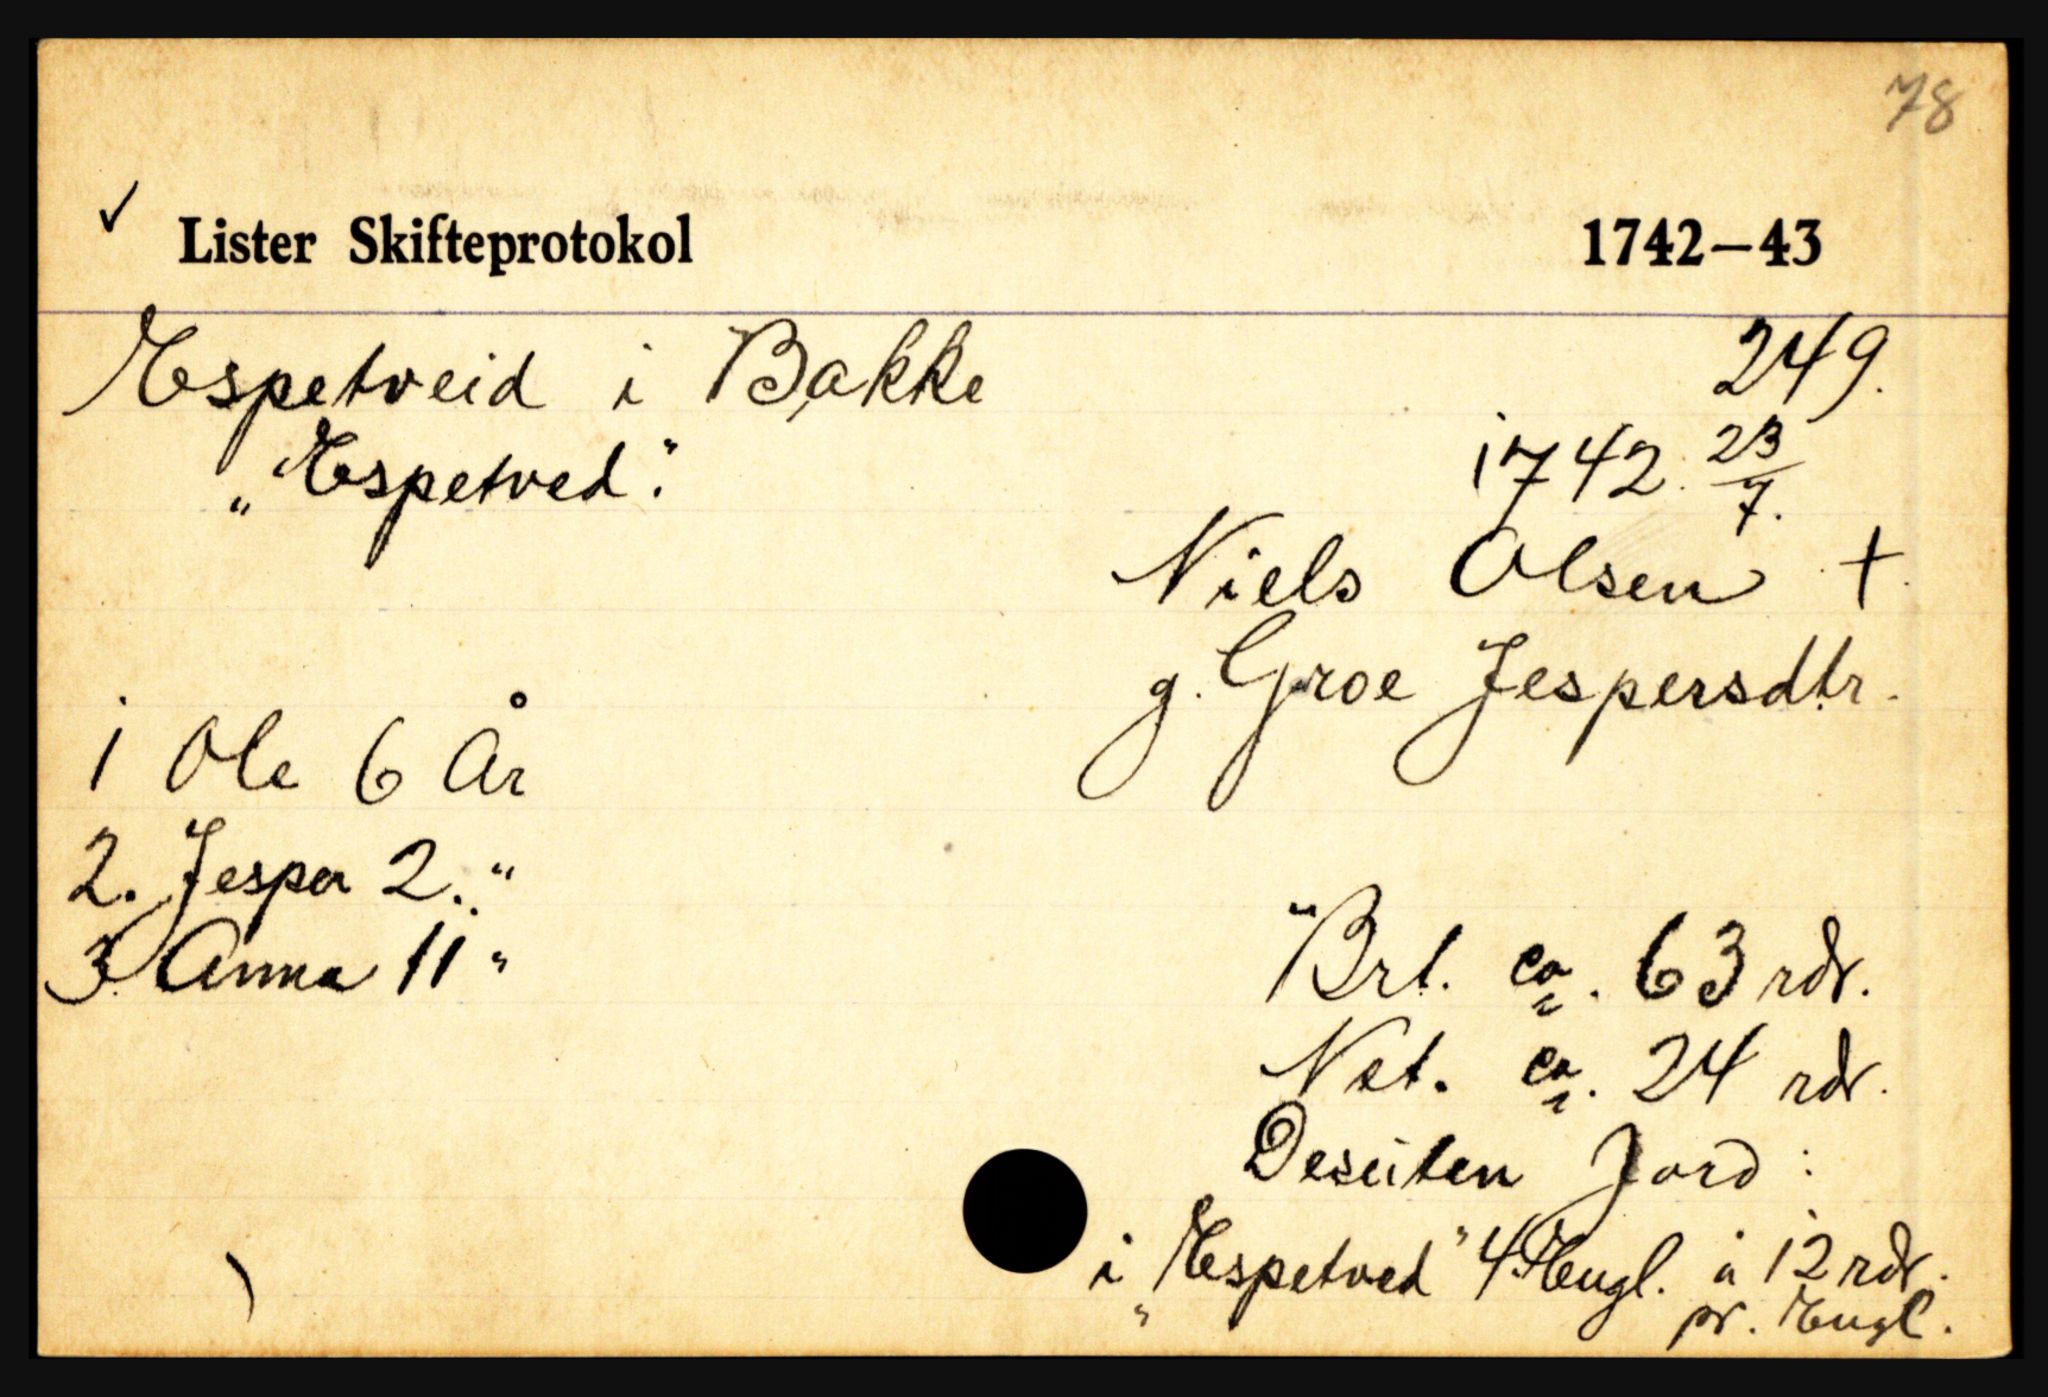 78
✓ Lister Skifteprotokol 1742–43
Espetveid i Bakke 249.
„Espetved“. 1742. 23/7.
Niels Olsen †.
g. Groe Jespersdtr.
1 Ole 6 År
2. Jesper 2. "
3 Anna 11 "
Brt. ca. 63 rdr.
Net. ca. 24 rdr.
Desuten Jord:
i „Espetved" 4 Hugl. à 12 rdr.
pr. Hugl.